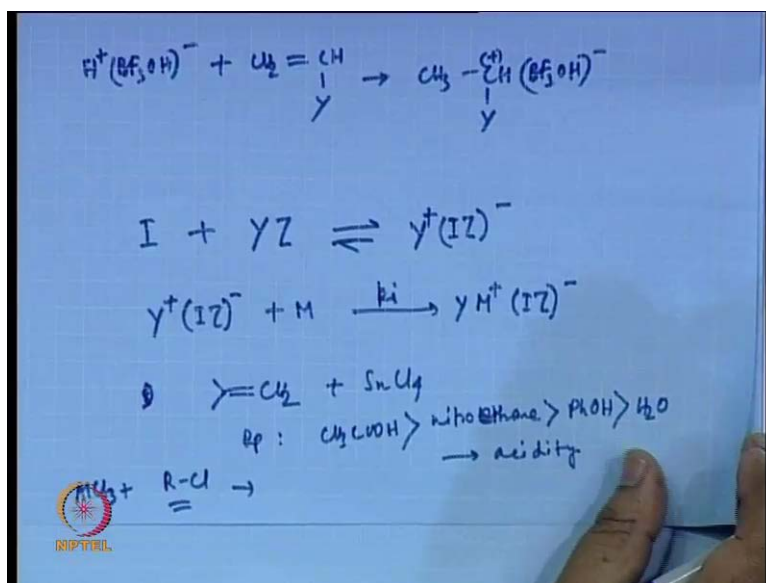 H⁺(BF₃OH)⁻ + CH₂ = CH → CH₃ - CH (BF₃OH)⁻
Y (+) Y
I + YZ ⇌ Y⁺(IZ)⁻
Y⁺(IZ)⁻ + M —ki→ YM⁺(IZ)⁻
=CH₂ + SnCl₄
Rp : CH₃COOH > nitroethane > PhOH > H₂O
→ acidity
AlCl₃ + R-Cl →
NPTEL